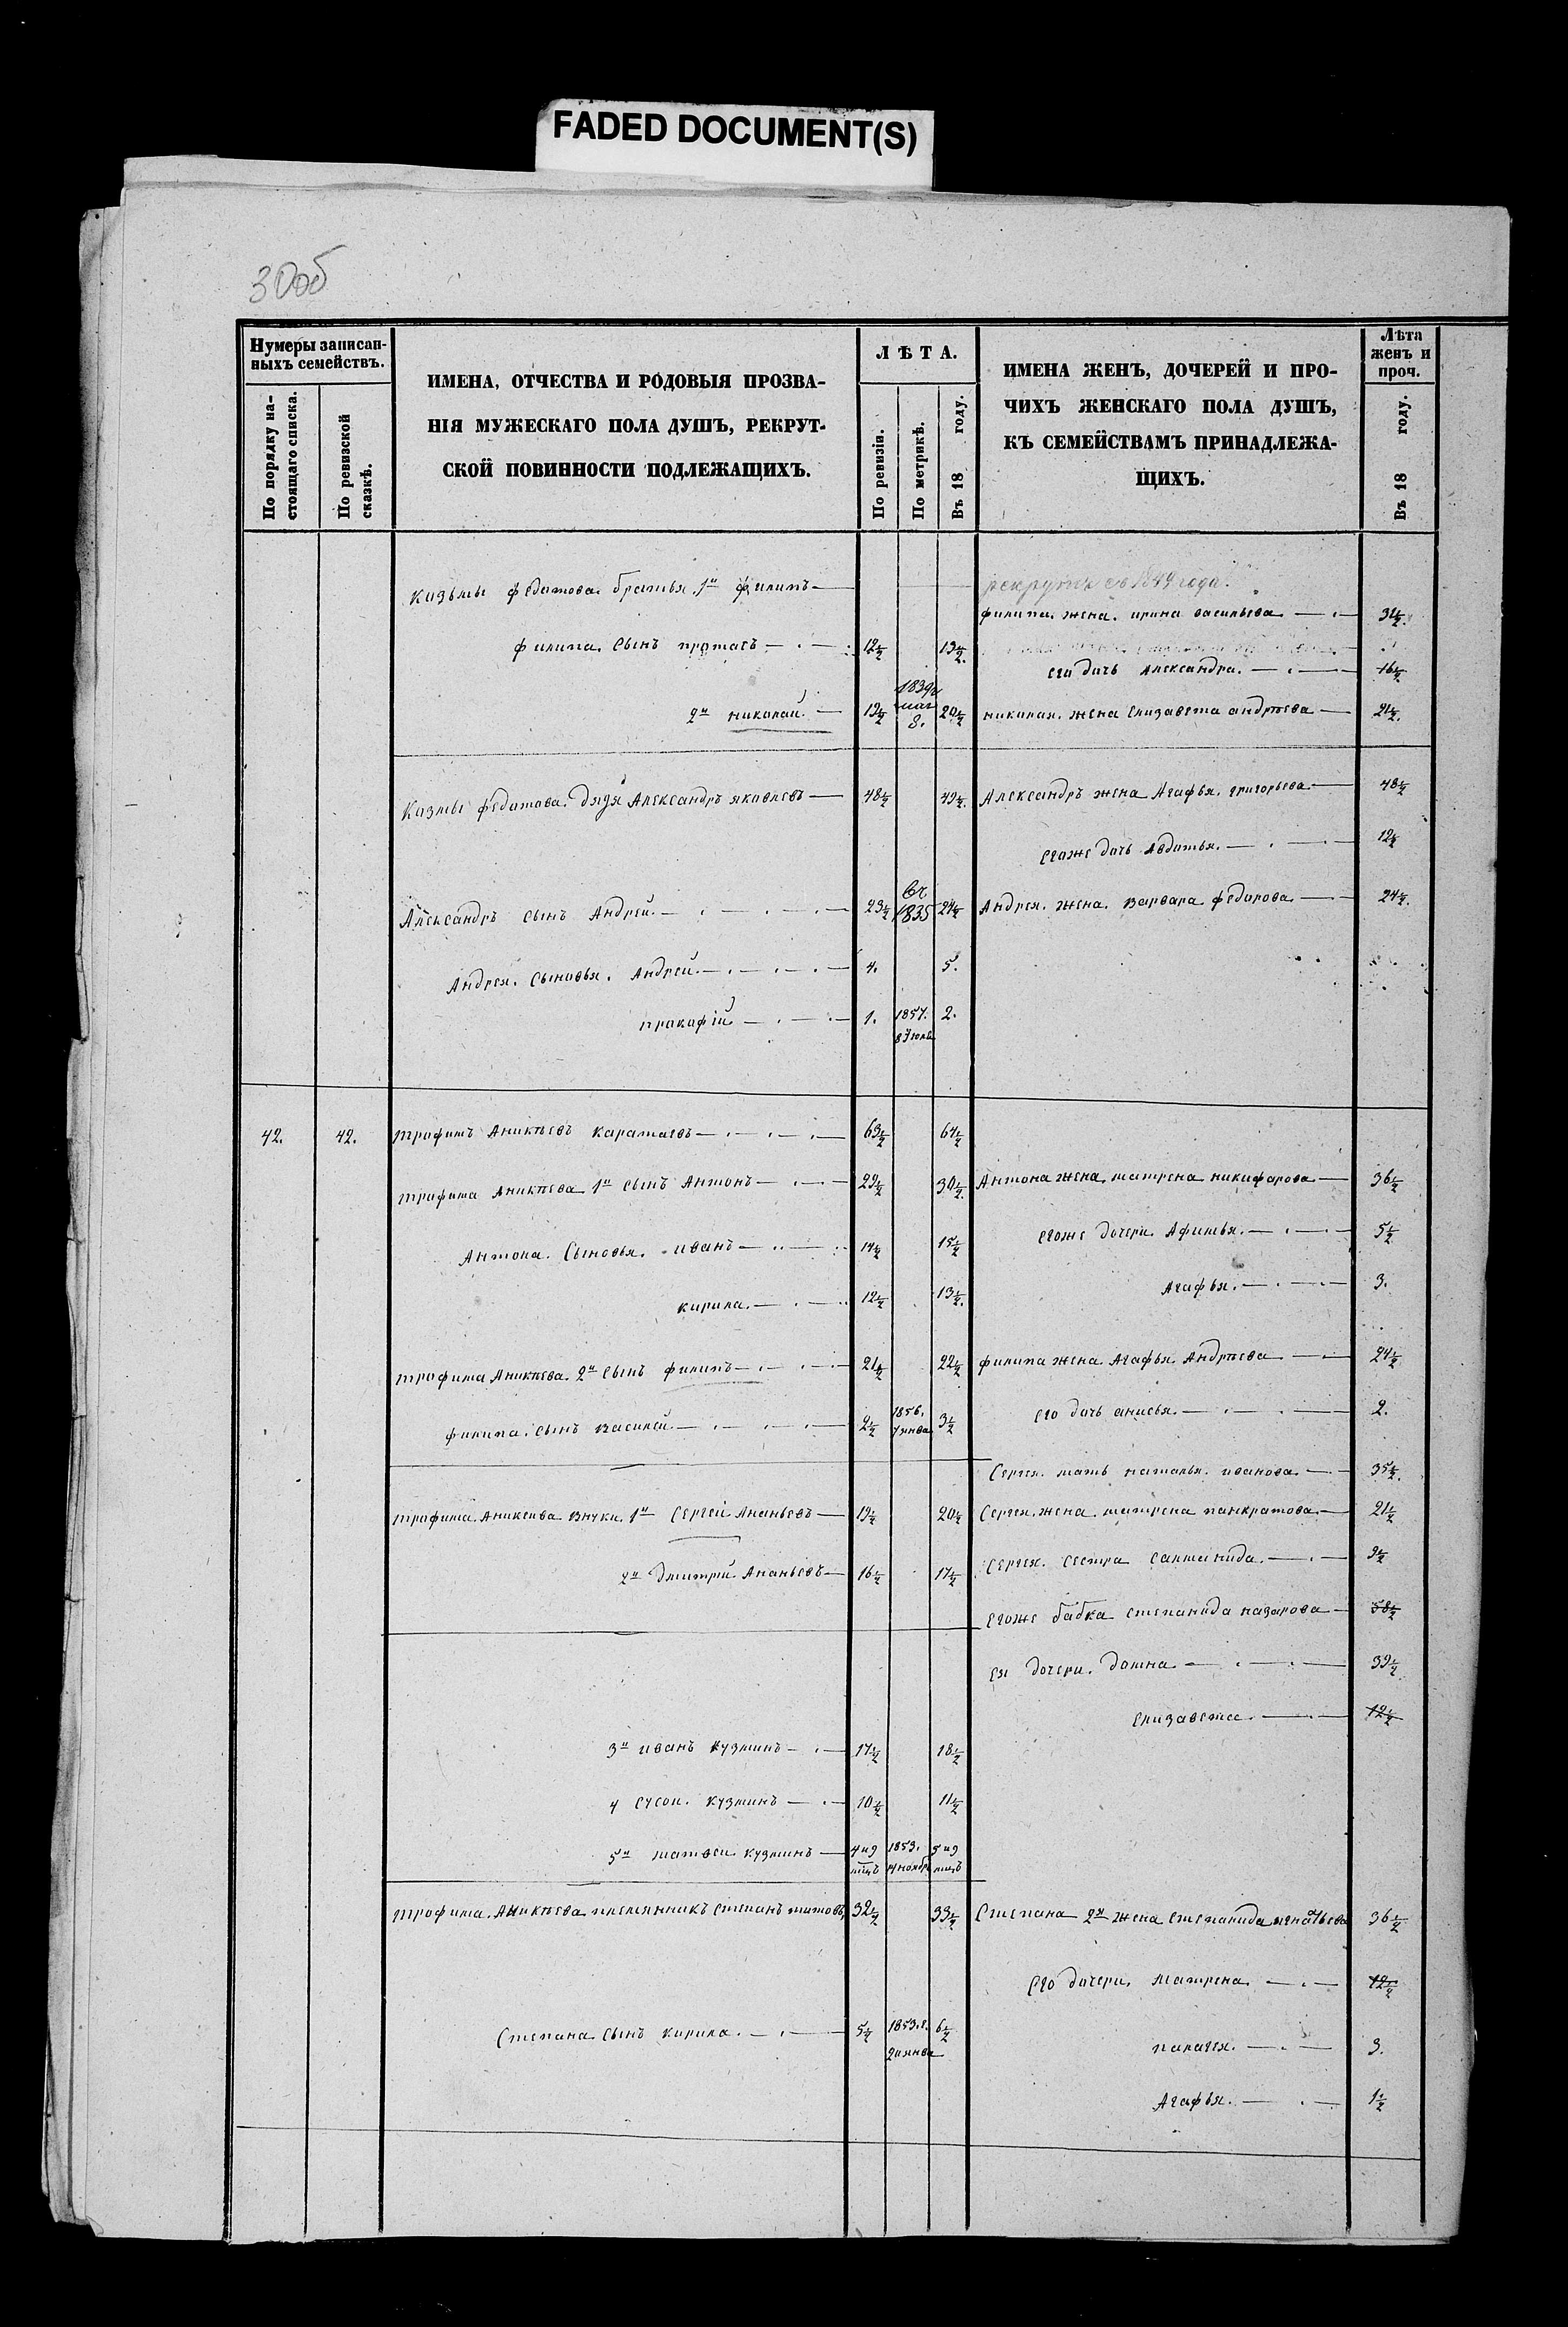 FADED DOCUMENT(S)
30об
Нумеры записан-
ныхъ семействъ.
По порядку на-
стоящаго списка.
По ревизской
сказкѣ.
ИМЕНА, ОТЧЕСТВА И РОДОВЫЯ ПРОЗВА-
НІЯ МУЖЕСКАГО ПОЛА ДУШЪ, РЕКРУТ-
СКОЙ ПОВИННОСТИ ПОДЛЕЖАЩИХЪ.
ЛѢТА.
По ревизіи.
По метрикѣ.
Въ 18 году.
ИМЕНА ЖЕНЪ, ДОЧЕРЕЙ И ПРО-
ЧИХЪ ЖЕНСКАГО ПОЛА ДУШЪ,
КЪ СЕМЕЙСТВАМЪ ПРИНАДЛЕЖА-
ЩИХЪ.
Лѣта
женъ и
проч.
Въ 18 году.
Казьмы Федотова братья 1й Филипъ
рекрутъ съ 1849 года.
Филипа жена ирина васильева 31½
Филипа Сынъ протасъ 12½ 13½
его дочь Александра 16½
2й николай 19½ 1839г мая 8. 20½ николая жена Елизавета андрѣева 21½
Казмы Федотова Дядя Александръ яковлевъ 48½ 49½ Александръ жена Агафья григорьева 48½
Егоже дочь Авдотья 12½
Александръ Сынъ Андрей 23½ 1835 24½ Андрея жена варвара Федорова 24½
Андрея Сыновья Андрей 4. 5.
прокофій 1. 1857. 8 Июля 2.
42. 42. Трофимъ Аникѣевъ Каратаевъ 63½ 64½
Трофима Аникѣева 1й Сынъ Антонъ 29½ 30½ Антона жена матрена никифорова 36½
Антона Сыновья иванъ 14½ 15½ Егоже дочери Афимья 5½
кирила 12½ 13½ Агафья 3.
Трофима Аникѣева 2й Сынъ филипъ 21½ 22½ филипа жена Агафья Андрѣева 24½
филипа Сынъ василей 2½ 1856. 3½ Его дочь анисья 2.
Сергея мать наталья иванова 35½
Трофима Аникеива внуки 1й Сергей Ананьевъ 19½ 20½ Сергея жена матрена панкратова 21½
2й Дмитрий Ананьевъ 16½ 17½ Сергея Сестра 9½
Егоже бабка степанида назарова 58½
ея дочери Домна 39½
Елизавета 12½
3й иванъ Кузминъ 17½ 18½
4 Сусои Кузминъ 10½ 11½
5й матвеи Кузминъ 4 и 9 мцъ 1853. 5 и 9 мцъ
Трофима Аникѣева племянникъ степанъ титовъ 32½ 33½ Степана 2я жена степанида игнатьева 36½
Его дочери Матрена 12½
Степана Сынъ Кирила 5½ 1853.г. 6½
палагея 3.
Агафья 1½